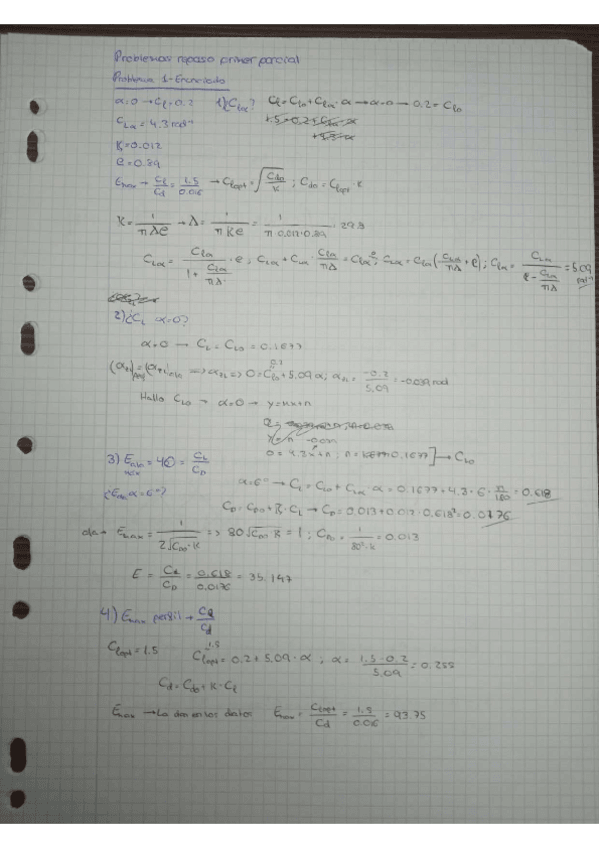 Problemas repaso primer parcial
Problema 1-Enunciado
α=0 → Cl=0.2 1) ¿Clα? Cl=Clo+Clα·α → α=0 → 0.2=Clo
CLα = 4.3 rad⁻¹
K=0.012
e=0.89
Emax → Cl/Cd = 1.5/0.016 → Clopt = √(Cdo/K) ; Cdo = Clopt²·K
K = 1/(πΛe) → Λ = 1/(πKe) = 1/(π·0.012·0.89) = 29.8
CLα = Clα/(1+Clα/(πΛ))·e ; CLα + CLα·Clα/(πΛ) = Clα·e ; CLα = Clα(CLα/(πΛ)+e) ; Clα = CLα/(e-CLα/(πΛ)) = 5.09 rad⁻¹
2) ¿CL α=0?
α=0 → CL = CLo = 0.1677
0 = Clo + 5.09 α ; = -0.2/5.09 = -0.039 rad
Hallo CLo → α=0 → y=mx+n
→ CLo
3) Emax = 40 = CL/CD
¿E α=6º?
α=6º → CL = CLo + CLα·α = 0.1677+4.3·6·π/180 = 0.618
CD = CDo + K·CL² → CD = 0.013+0.012·0.618² = 0.0176
dato Emax = 1/(2√(CDo·K)) => 80√(CDo·K) = 1 ; CDo = 1/(80²·K) = 0.013
E = CL/CD = 0.618/0.0176 = 35.147
4) Emax perfil → Cl/Cd
Clopt=1.5 Clopt = 0.2+5.09·α ; α = (1.5-0.2)/5.09 = 0.255
Cd = Cdo + K·Cl
Emax → Lo dan en los datos Emax = Clopt/Cd = 1.5/0.016 = 93.75